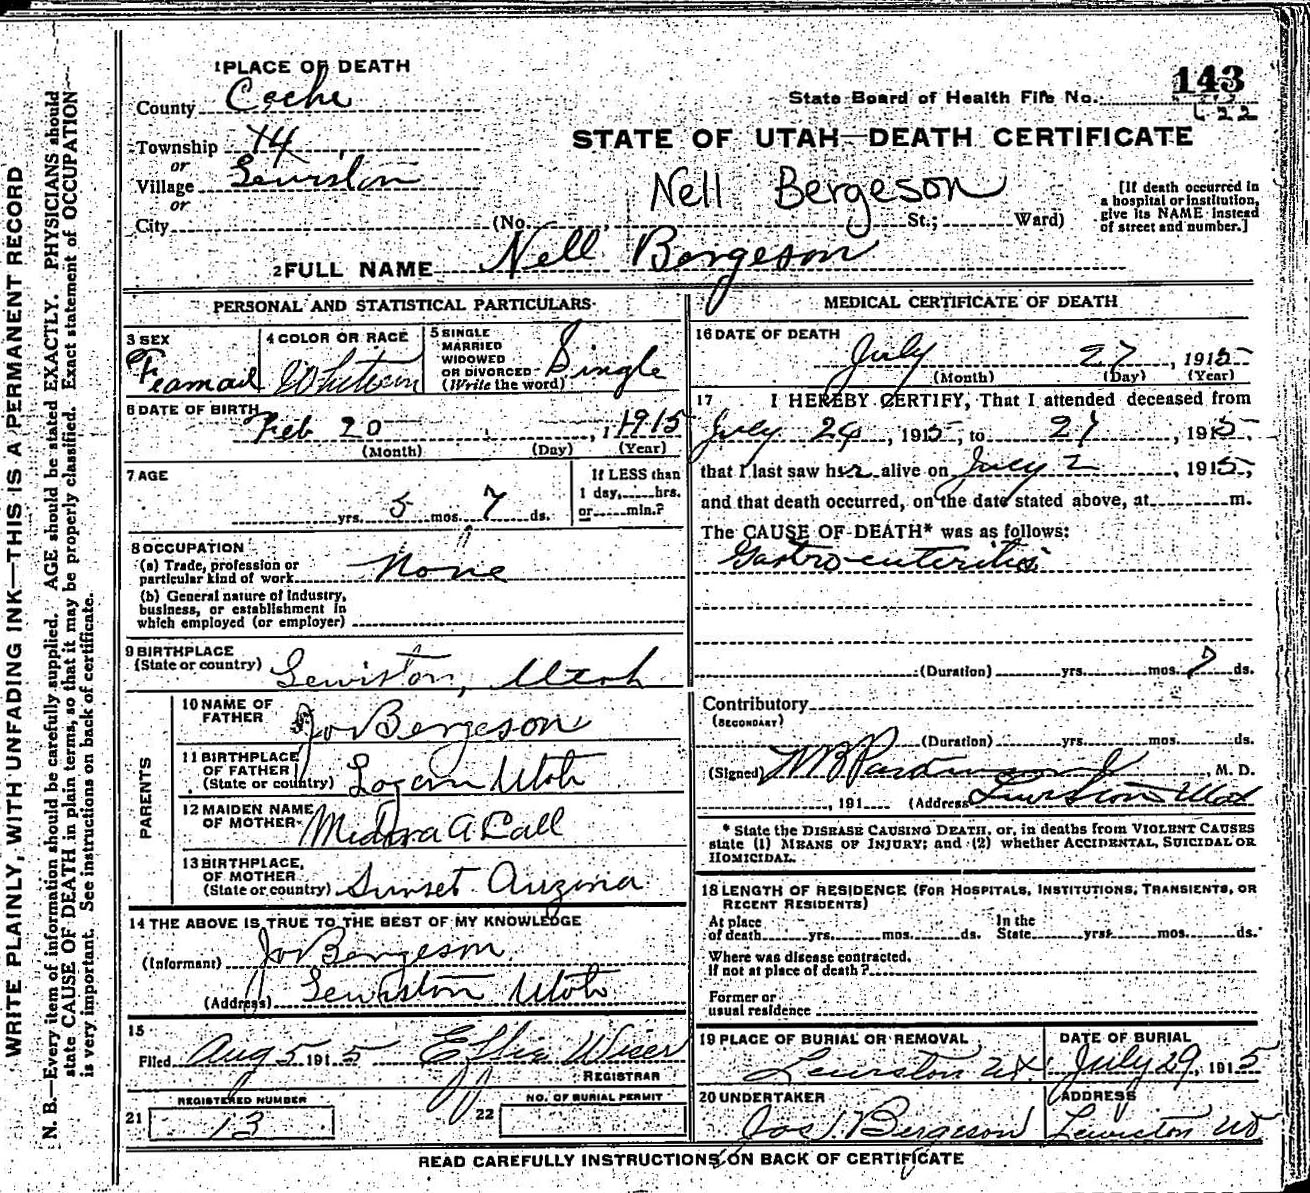 WRITE PLAINLY, WITH UNFADING INK—THIS IS A PERMANENT RECORD
N. B.—Every item of information should be carefully supplied. AGE should be stated EXACTLY. PHYSICIANS should
state CAUSE OF DEATH in plain terms, so that it may be properly classified. Exact statement of OCCUPATION
is very important. See instructions on back of certificate.
1 PLACE OF DEATH
County Cache
Township 14
or
Village Lewiston
or
City
143
State Board of Health File No.
STATE OF UTAH—DEATH CERTIFICATE
Nell Bergeson
(No. St.; Ward)
[If death occurred in
a hospital or institution,
give its NAME instead
of street and number.]
2 FULL NAME Nell Bergeson
PERSONAL AND STATISTICAL PARTICULARS
3 SEX
4 COLOR OR RACE
5 SINGLE
MARRIED
WIDOWED
OR DIVORCED
(Write the word)
Single
6 DATE OF BIRTH
Feb 20, 1915
(Month) (Day) (Year)
7 AGE
yrs. 5 mos. 7 ds.
If LESS than
1 day, hrs.
or min.?
8 OCCUPATION
(a) Trade, profession or
particular kind of work
None
(b) General nature of industry,
business, or establishment in
which employed (or employer)
9 BIRTHPLACE
(State or country) Lewiston, Utah
PARENTS
10 NAME OF
FATHER
Jos Bergeson
11 BIRTHPLACE
OF FATHER
(State or country) Logan Utah
12 MAIDEN NAME
OF MOTHER
Medora A Call
13 BIRTHPLACE,
OF MOTHER
(State or country) Sunset Arizona
14 THE ABOVE IS TRUE TO THE BEST OF MY KNOWLEDGE
(Informant) Jos Bergeson
(Address) Lewiston Utah
15
Filed Aug 5 1915 Effie Wiser
REGISTRAR
21 REGISTERED NUMBER
13
22 NO. OF BURIAL PERMIT
MEDICAL CERTIFICATE OF DEATH
16 DATE OF DEATH
July 27, 1915
(Month) (Day) (Year)
17 I HEREBY CERTIFY, That I attended deceased from
July 24, 1915, to 27, 1915,
that I last saw her alive on July 2, 1915,
and that death occurred, on the date stated above, at m.
The CAUSE OF DEATH* was as follows:
Gastro enteritis
(Duration) yrs. mos. 7 ds.
Contributory
(SECONDARY)
(Duration) yrs. mos. ds.
(Signed) W B Parkinson, M. D.
, 191 (Address Lewiston Utah
* State the DISEASE CAUSING DEATH, or, in deaths from VIOLENT CAUSES
state (1) MEANS OF INJURY; and (2) whether ACCIDENTAL, SUICIDAL OR
HOMICIDAL.
18 LENGTH OF RESIDENCE (FOR HOSPITALS, INSTITUTIONS, TRANSIENTS, OR
RECENT RESIDENTS)
At place
of death yrs. mos. ds.
In the
State yrs. mos. ds.
Where was disease contracted,
If not at place of death?
Former or
usual residence
19 PLACE OF BURIAL OR REMOVAL
Lewiston Ut.
DATE OF BURIAL
July 29, 1915
20 UNDERTAKER
Jos J. Bergeson
ADDRESS
Lewiston Ut
READ CAREFULLY INSTRUCTIONS ON BACK OF CERTIFICATE